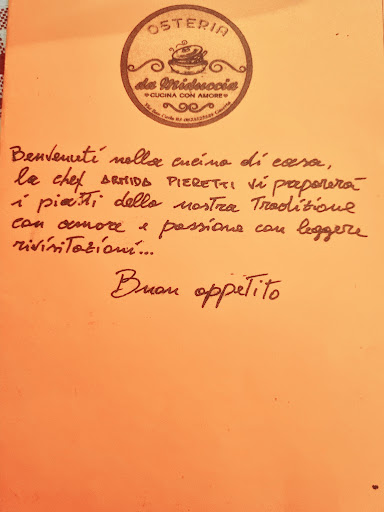 OSTERIA
da Miduccia
CUCINA CON AMORE
Benvenuti nella cucina di casa,
la chef ARMIDA PIERETTI vi preparerà
i piatti della nostra Tradizione
con amore e passione con leggere
rivisitazioni...
Buon appetito